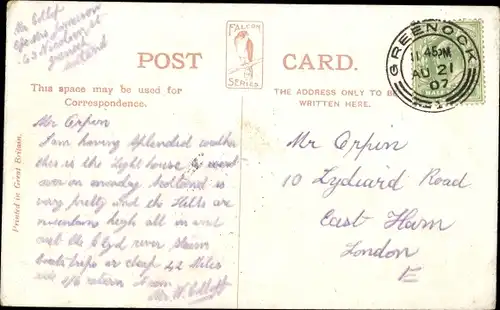 Mr Collop
63 Nicolson St
Greenock
Scotland
POST CARD.
FALCON
SERIES
This space may be used for
Correspondence.
THE ADDRESS ONLY TO BE
WRITTEN HERE.
GREENOCK
11 45PM
AU 21
07
Printed in Great Britain.
Mr Orpin
I am having splendid weather
this is the light house I went
over on monday Scotland is
very pretty and the Hills are
mountains high all in and
out the Clyd river steam
boats trips is cheap 42 Miles
ride 1/6 return
Mr W. Collop
Mr Orpin
10 Lydiard Road
East Ham
London
E